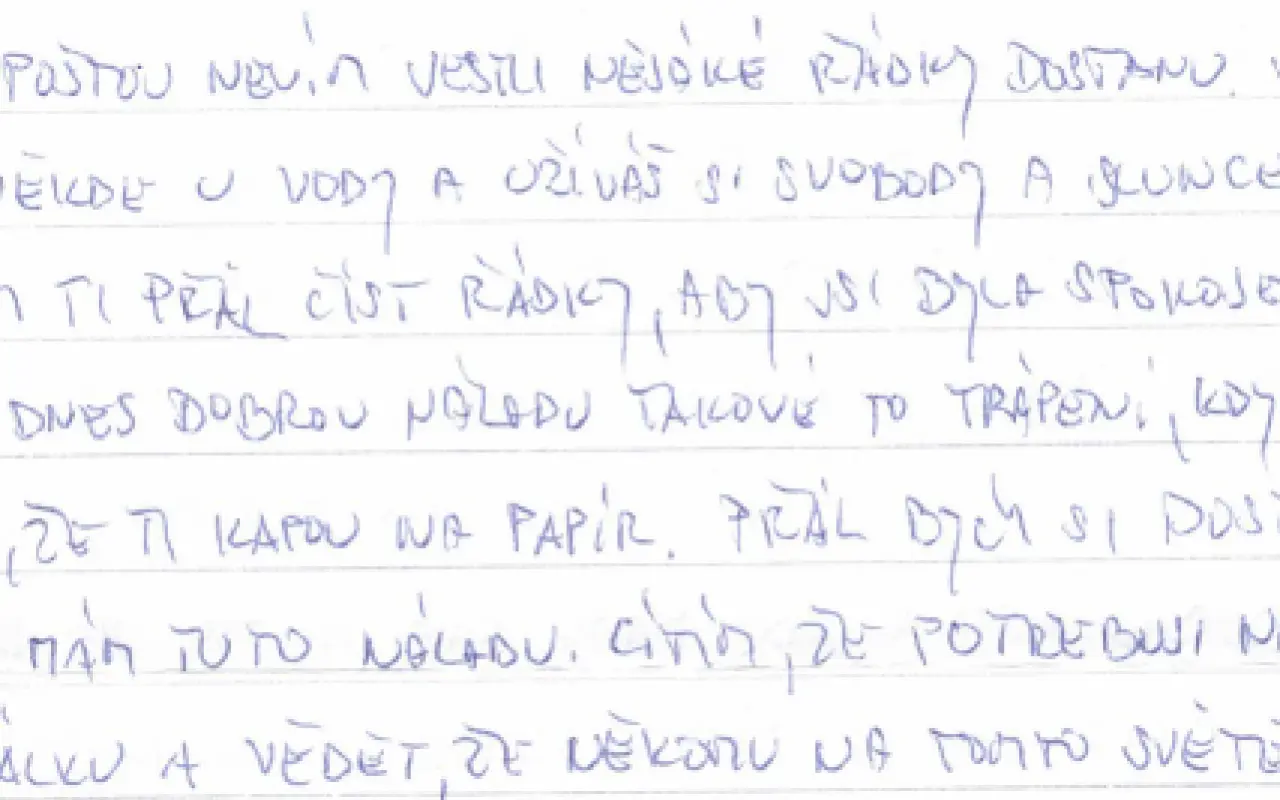 POŠTOU NEVÍM JESTLI NĚJAKÉ ŘÁDKY DOSTANU.
NĚKDE U VODY A UŽÍVÁŠ SI SVOBODY A SLUNCE
TI PŘÁL ČÍST ŘÁDKY, ABY JSI BYLA SPOKOJE
DNES DOBROU NÁLADU TAKOVÉ TO TRÁPENÍ, KDY
, ŽE TI KAPOU NA PAPÍR. PŘÁL BYCH SI DOST
MÁM TUTO NÁLADU. CÍTÍM, ŽE POTŘEBUJI
ÁLKU A VĚDĚT, ŽE NĚKOMU NA TOMTO SVĚTĚ